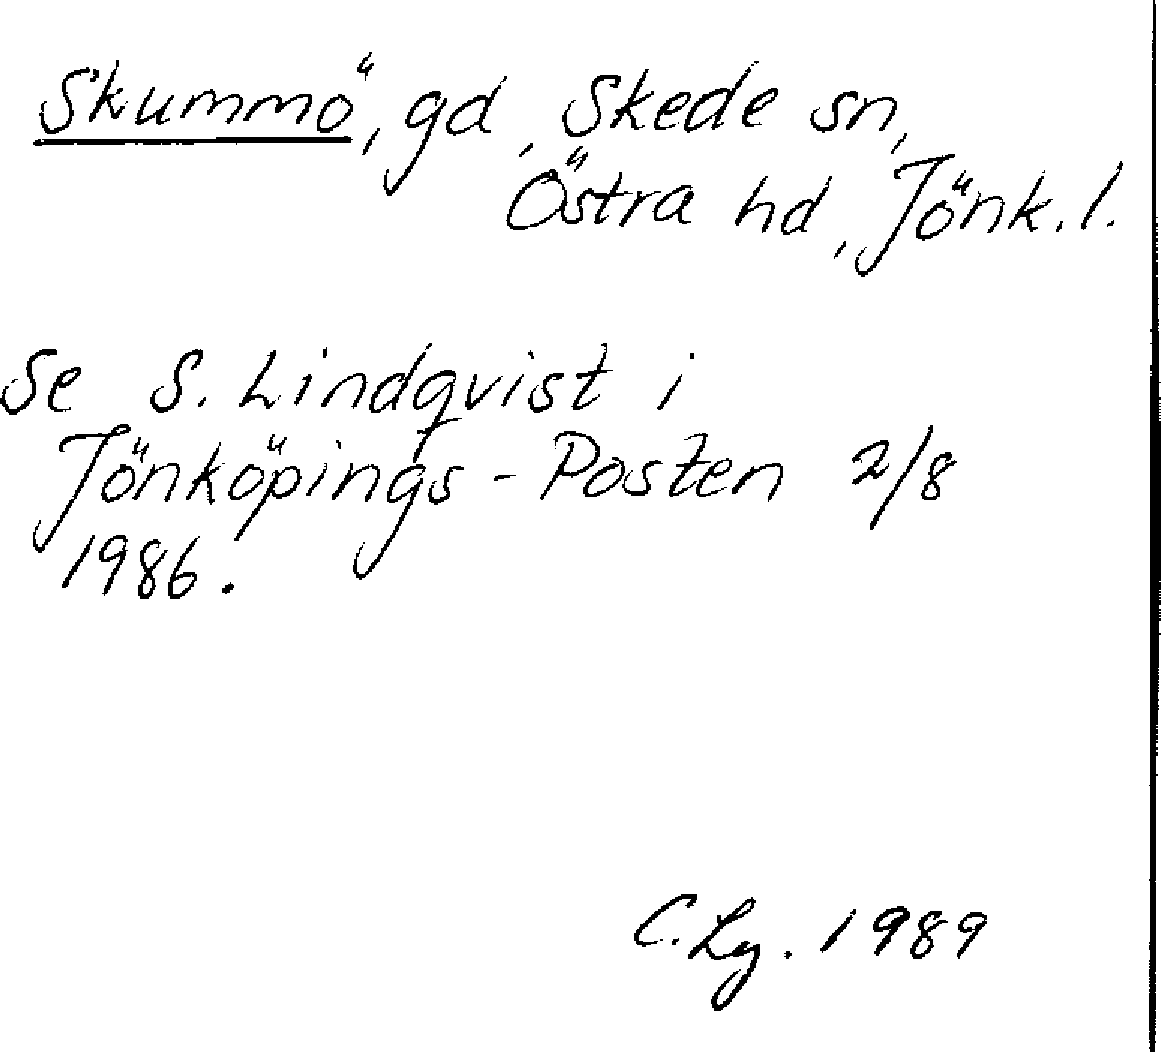 Skummö, gd, Skede sn,
Östra hd, Jönk. l.
Se S. Lindqvist i
Jönköpings-Posten 2/8
1986.
C. Lg. 1989